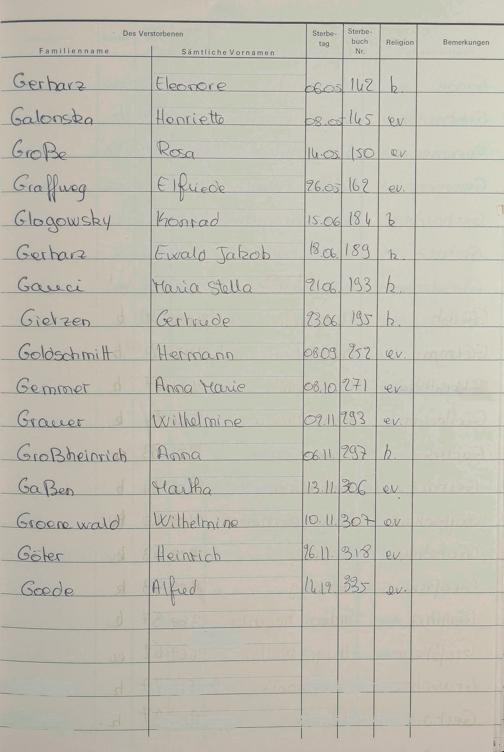 Des Verstorbenen Sterbe- Sterbe-
tag buch Religion Bemerkungen
Familienname Sämtliche Vornamen Nr.
Gerharz Eleonore 06.05 142 k.
Galonska Henriette 08.05 145 ev
Große Rosa 14.05 150 ev
Graffweg Elfriede 26.05 162 ev.
Glogowsky Konrad 15.06 184 k
Gerharz Ewald Jakob 18.06. 189 k.
Gauci Maria Stella 21.06. 193 k.
Gietzen Gertrude 23.06 195 k.
Goldschmitt Hermann 08.09 252 ev.
Gemmer Anna Marie 08.10 271 ev
Grauer Wilhelmine 02.11 293 ev.
Großheinrich Anna 06.11 297 k.
Gaßen Martha 13.11. 306 ev.
Groenewald Wilhelmine 10.11. 307 ev
Göter Heinrich 26.11. 318 ev
Goede Alfred 14.12. 335 ev.